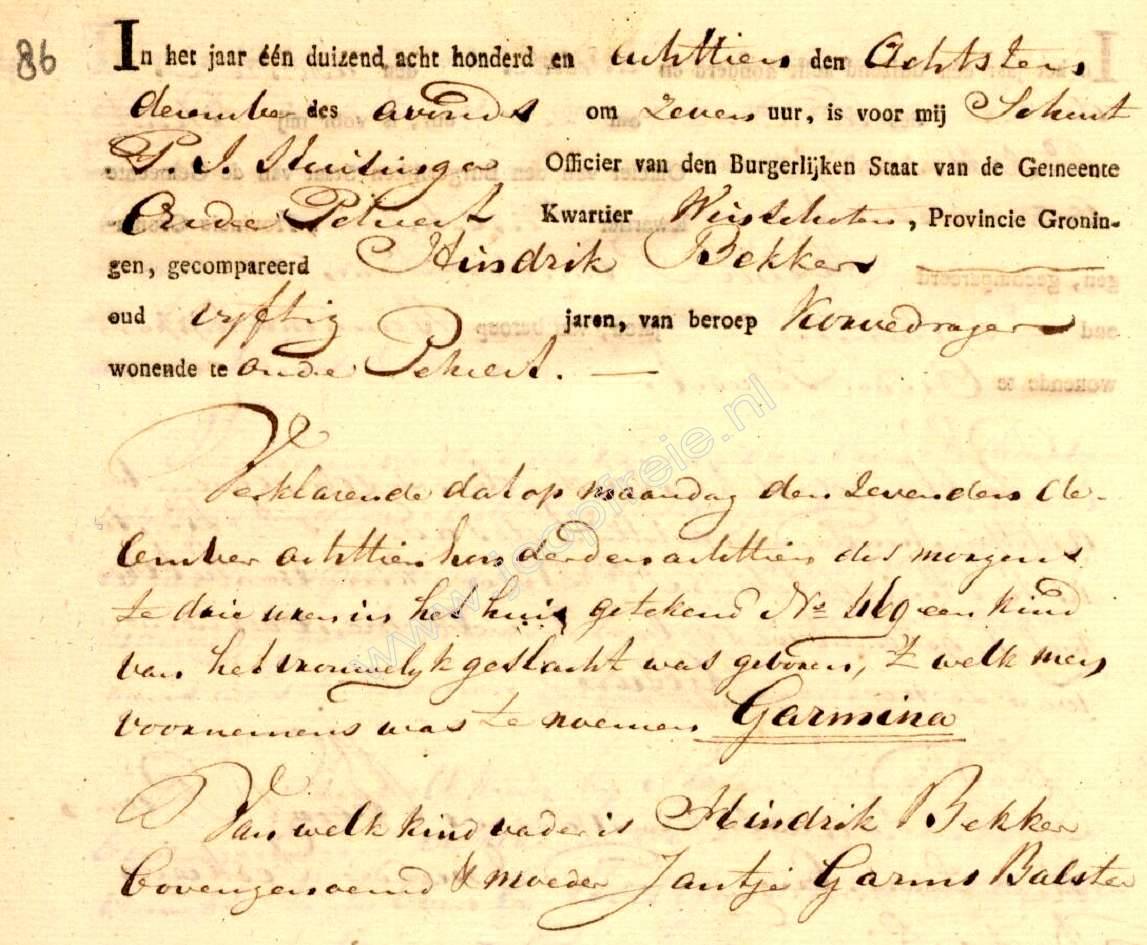 86
In het jaar één duizend acht honderd en achttien den Achtsten
december des avonds om zeven uur, is voor mij Schout
P. J. Officier van den Burgerlijken Staat van de Gemeente
Oude Pekela Kwartier Winschoten, Provincie Gronin-
gen, gecompareerd Hindrik Bekker
oud vyftig jaren, van beroep Korvedrager
wonende te oude Pekela.
Verklarende dat op maandag den zevenden de-
cember achttien honderd en achttien des morgens
te drie uren in het huis getekend No een kind
van het vrouwelyk geslacht was geboren, 't welk men
voornemens was te noemen Garmina
Van welk kind vader is Hindrik Bekker
bovengenoemd & moeder Jantje Garms Balster
www.joopfreie.nl